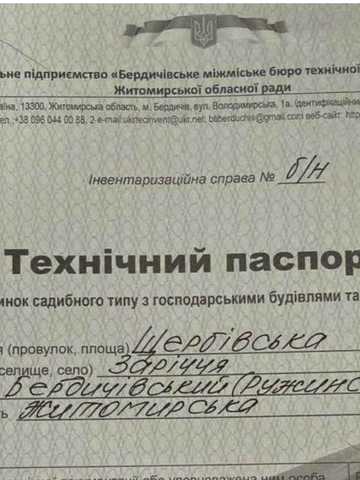 ьне підприємство «Бердичівське міжміське бюро технічної
Житомирської обласної ради
аїна, 13300, Житомирська область, м. Бердичів, вул. Володимирська, 1а. (ідентифікаційни
тел.,+38 096 044 00 88, 2-e-mail:ukrtecinvent@ukr.net; btiberduchiv@gmail.com веб-сайт: http
Інвентаризаційна справа № б/н
Технічний паспор
инок садибного типу з господарськими будівлями та
я (провулок, площа) Щербівська
селище, село) Заріччя
Бердичівський (Ружинс
ть Житомирська